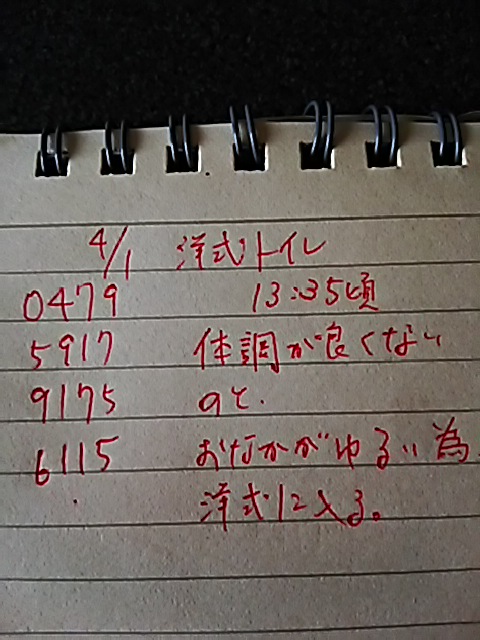 4/1 洋式トイレ
0479 13:35頃
5917 体調が良くない
9175 のと.
6115 おなかがゆるい為
洋式に入る。